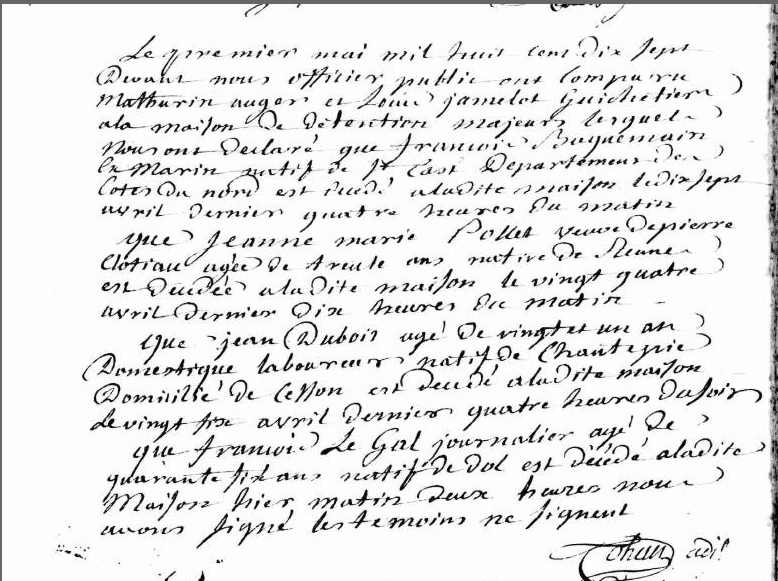 Le premier mai mil huit cent dix sept
Devant nous officier public ont comparu
Mathurin auger et Louis jamelot Guichetiers
ala maison de détention majeurs lesquels
Nous ont declaré que francois Baquemain
Ex Marin natif de St Cast Departement des
Cotes du nord est décédé aladite maison le dix sept
avril dernier quatre heures du matin
que Jeanne marie Pollet veuve de pierre
Clotiau agée de trente ans native de Rennes
est décédée aladite maison le vingt quatre
avril dernier dix heures du matin
que jean Dubois agé de vingt et un an
Domestique laboureur natif de Chantepie
Domicilié de Cesson est décédé aladite maison
Le vingt six avril dernier quatre heures du soir
que francois Le Gal journalier agé de
quarante six ans natif de dol est décédé aladite
Maison hier matin deux heures nous
avons signé les temoins ne signent
adj.